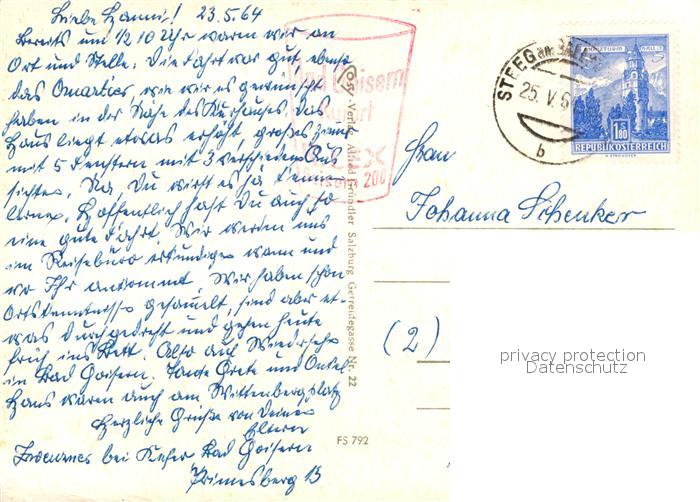 Liebe Hanni! 23.5.64
Bereits um 1/2 10 Uhr waren wir an
Ort und Stelle. Die Fahrt war gut ebenso
das Quartier, wie wir es gewünscht
haben in der Nähe des Kurhauses. Das
Haus liegt etwas erhöht, großes Zimmer
mit 5 Fenstern mit 3 verschiedenen Aus
sichten. Na, Du wirst es ja kennen
lernen. Hoffentlich hast Du auch so
eine gute Fahrt. Wir werden uns
im Reisebüro erkundigen wann und
wo Ihr ankommt. Wir haben schon
Ortskenntnisse gesammelt, sind aber et-
was durchgedreht und gehen heute
früh ins Bett. Also auf Wiedersehn
in Bad Goisern. Tante Grete und Onkel
Hans waren auch am Wittenbergplatz
Herzliche Grüße von Deinen
Eltern
bei Kefer Bad Goisern
Primesberg 13
Bad Goisern
200
Cosy-Verlag Alfred Gründler Salzburg, Getreidegasse Nr. 22
FS 792
STEEG am HALLST
25. V. 6
b
MÜNZTURM HALL I.T.
1.80
REPUBLIK ÖSTERREICH
Frau
Johanna Schenker
(2)
privacy protection
Datenschutz